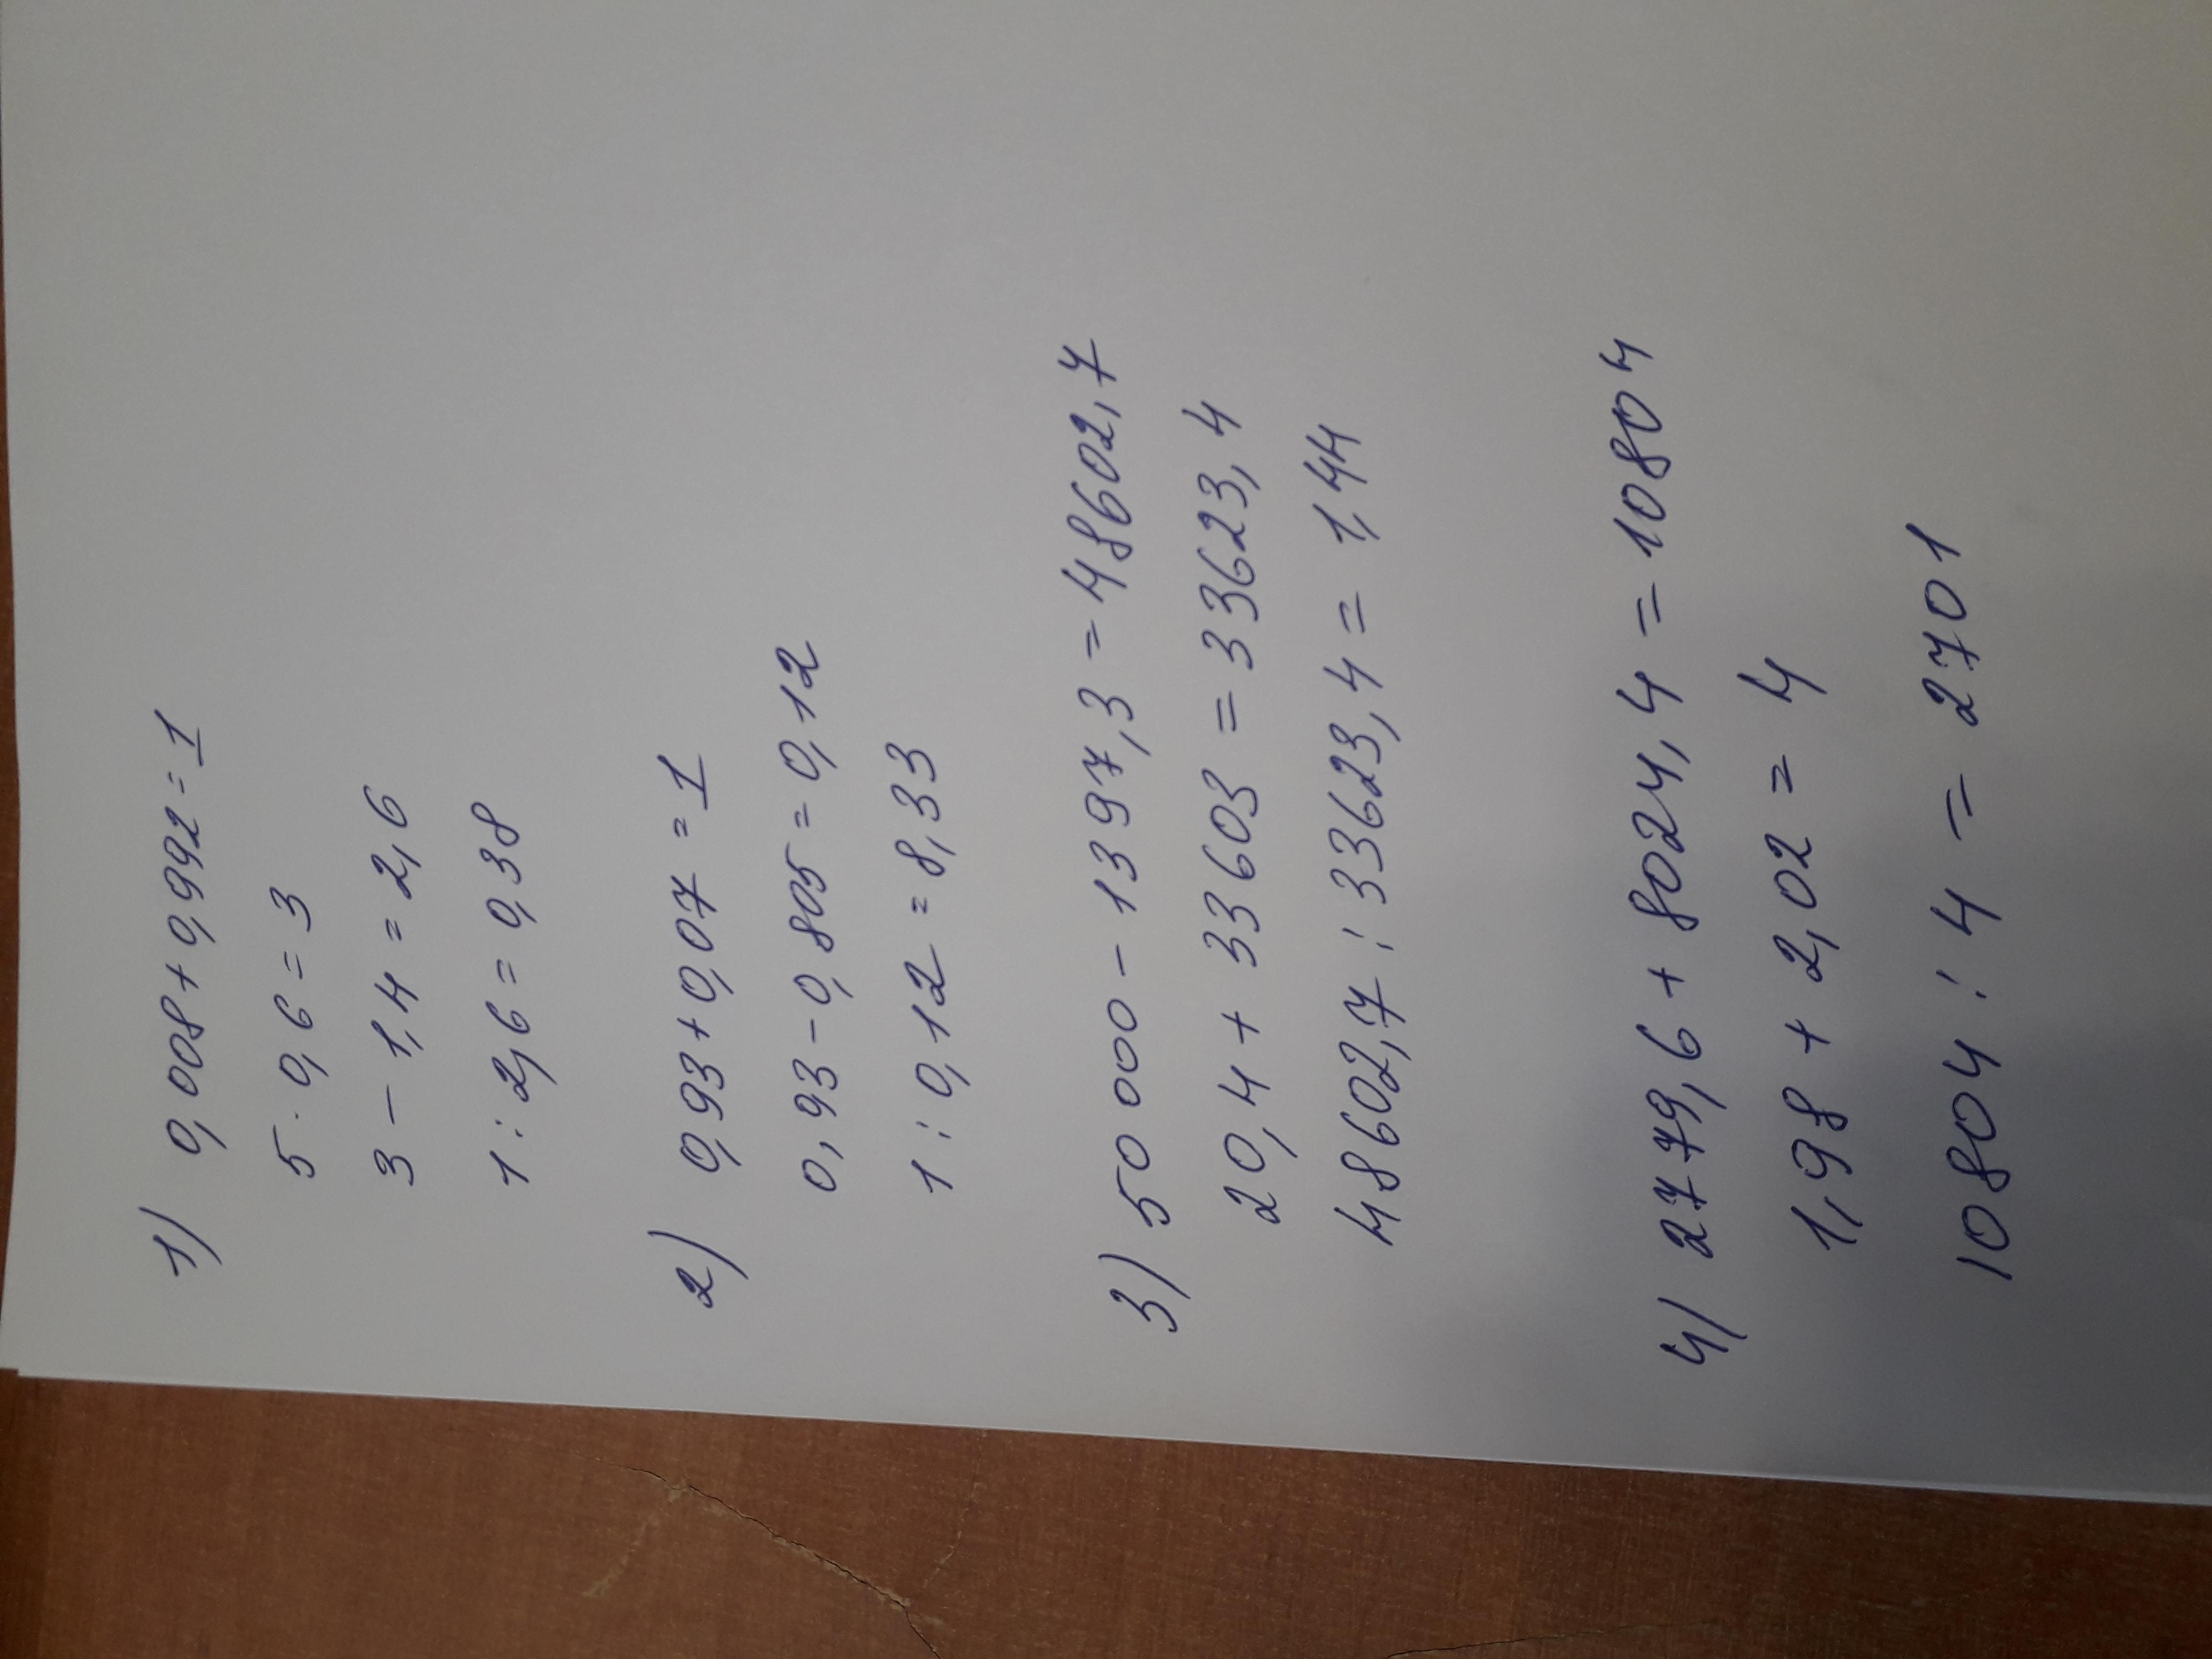 1) 0,008 + 0,992 = 1
5 · 0,6 = 3
3 - 1,4 = 2,6
1 : 2,6 = 0,38
2) 0,93 + 0,07 = 1
0,93 - 0,805 = 0,12
1 : 0,12 = 8,33
3) 50 000 - 1397,3 = 48602,7
20,4 + 33603 = 33623,4
48602,7 : 33623,4 = 1,44
4) 2779,6 + 8024,4 = 10804
1,98 + 2,02 = 4
10804 : 4 = 2701